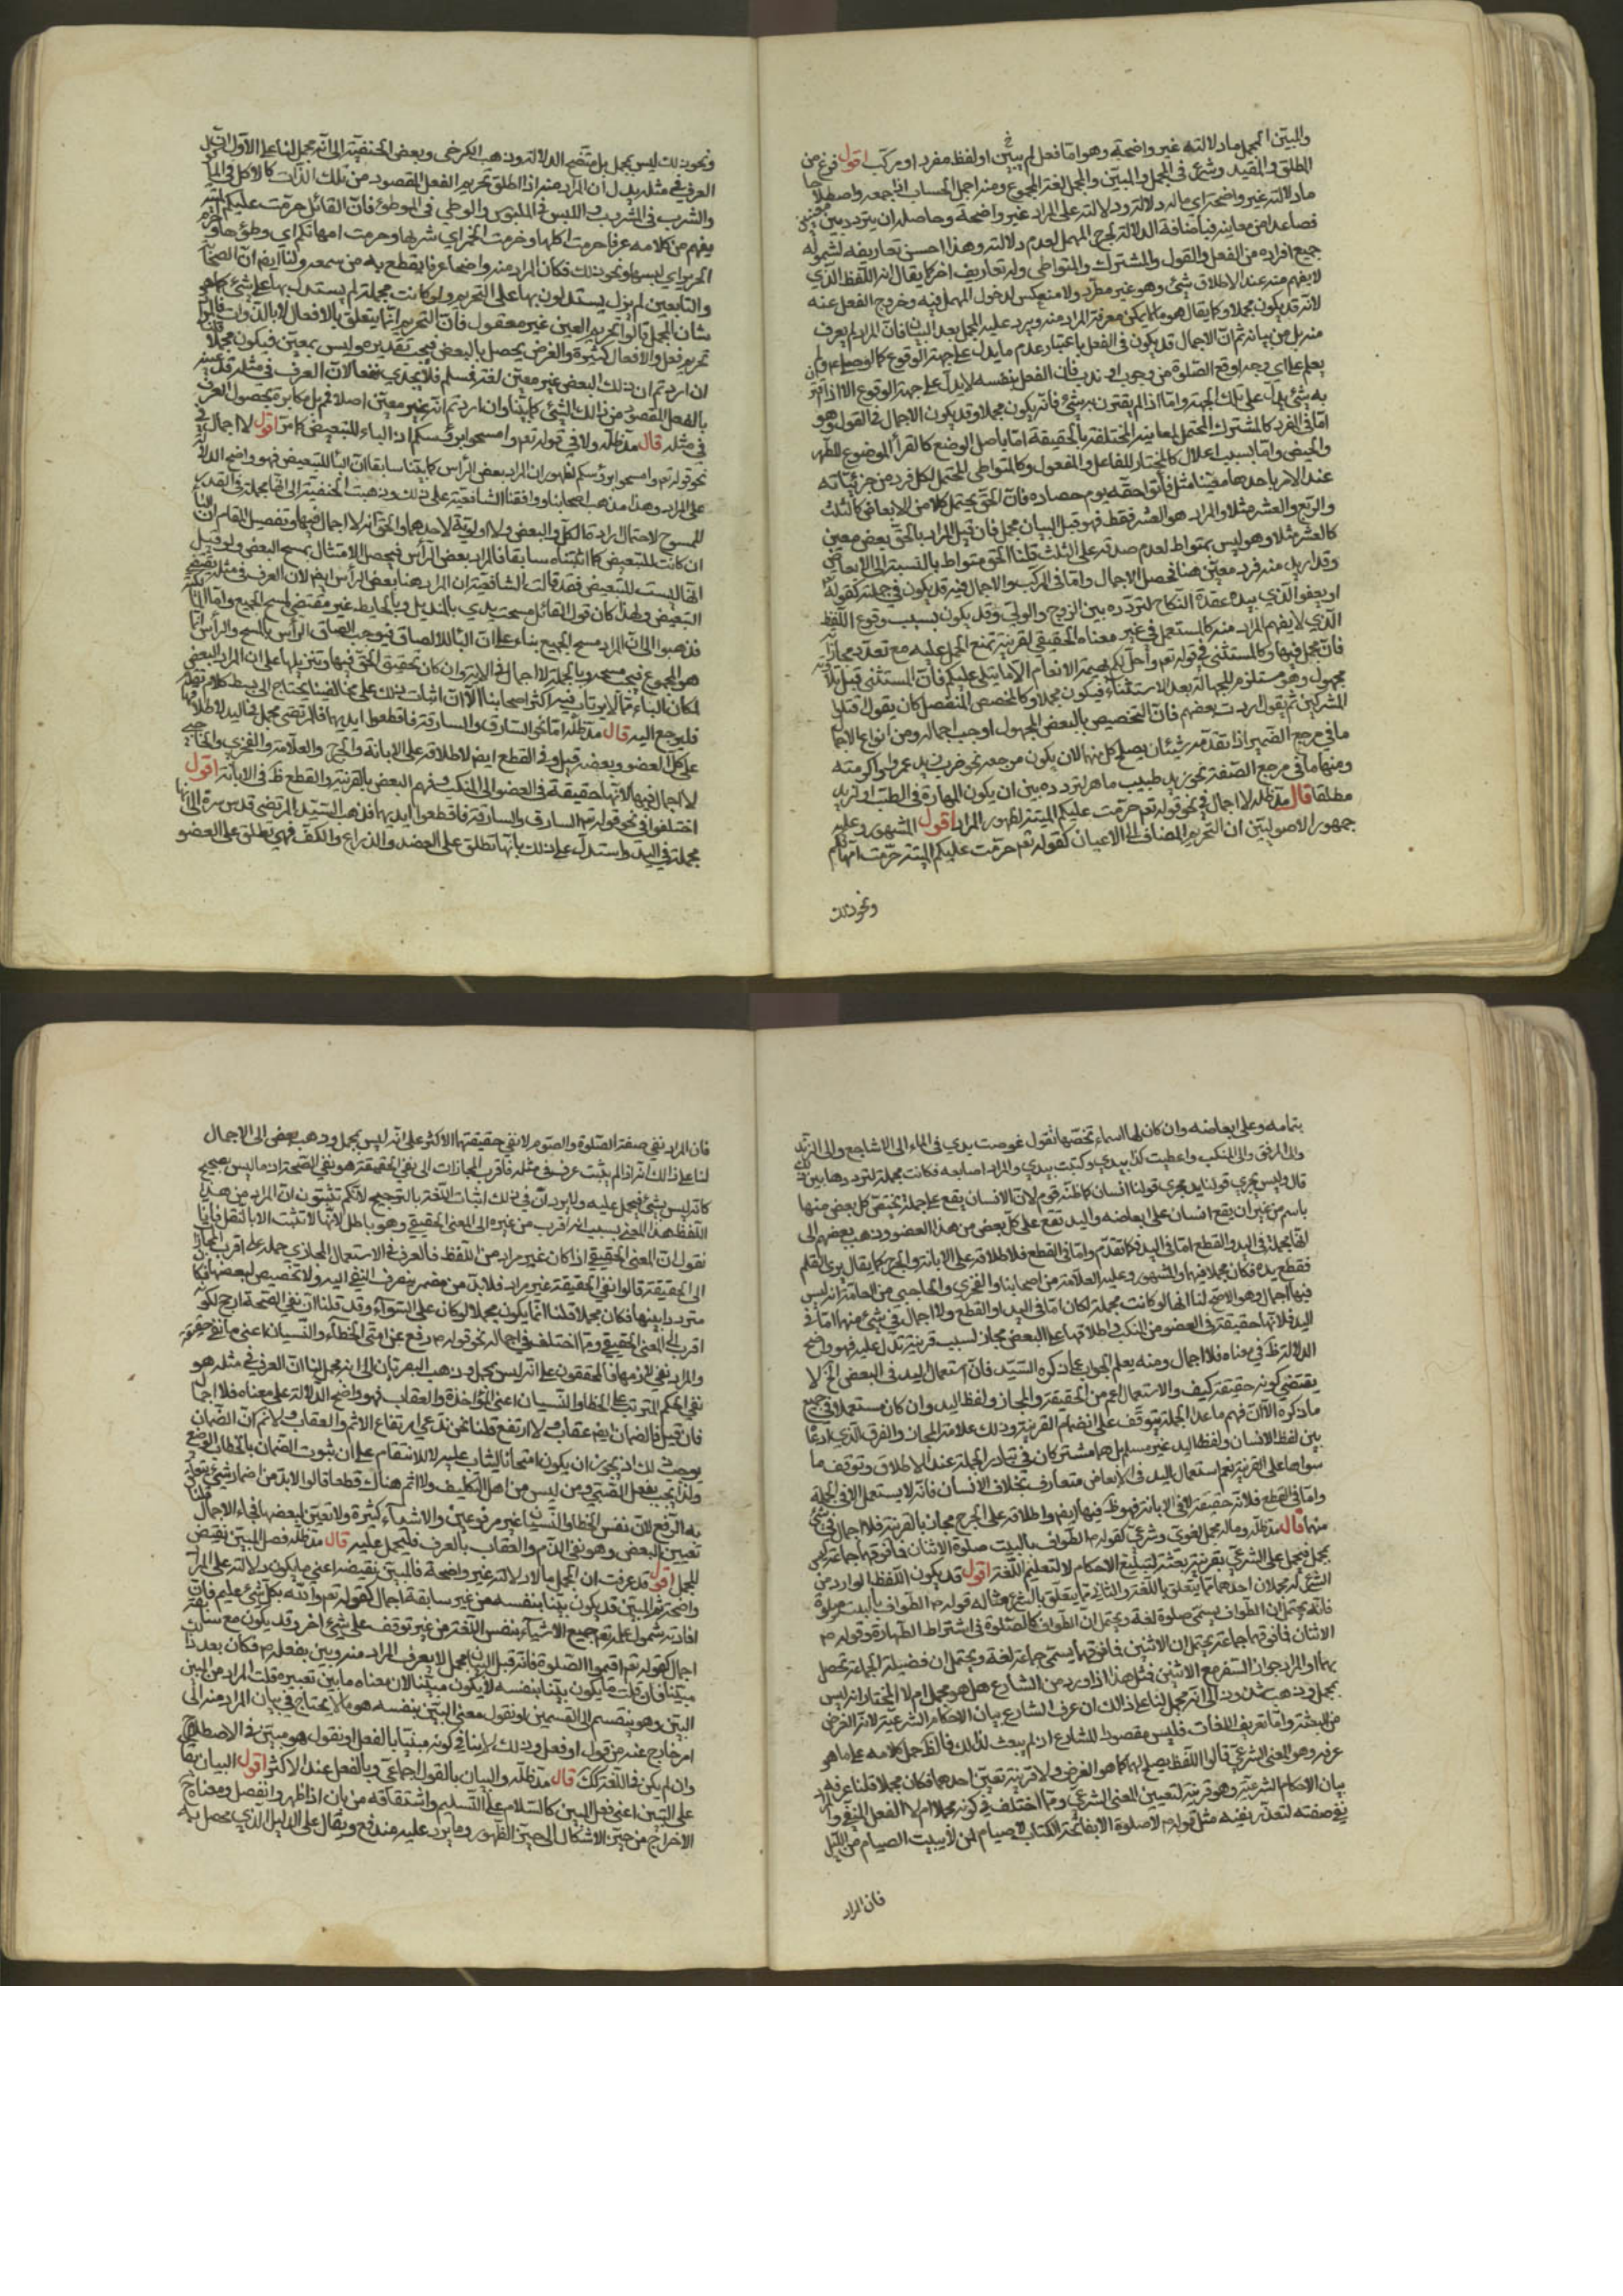 والمبين المجمل ما دلالته غير واضحة وهو اما فعل لم يبين او لفظ مفرد او مركب اقول فرغ من
المطلق والمقيد وشرع في المجمل والمبين والمجمل لغة المجموع ومنه اجمل الحساب اذا جمعه واصطلاحا
ما دلالته غير واضحة اي ما له دلالة ودلالته على المراد غير واضحة وحاصله ان يتردد بين معنيين
فصاعدا من معانيه فباضافة الدلالة خرج المهمل لعدم دلالته وهذا احسن تعاريفه لشموله
جميع افراده من الفعل والقول والمشترك والمتواطي وله تعاريف اخر كما يقال انه اللفظ الذي
لا يفهم منه عند الاطلاق شئ وهو غير مطرد ولا منعكس لدخول المهمل فيه وخروج الفعل عنه
لانه قد يكون مجملا وكما يقال هو ما لا يمكن معرفة المراد منه ويرد عليه المجمل بعد البيان فان المراد لم يعرف
منه بل من بيانه ثم ان الاجمال قد يكون في الفعل باعتبار عدم ما يدل على جهة الوقوع كما لو صلى ولم
يعلم على اي وجه اوقع الصلوة من وجوب او ندب فان الفعل بنفسه لا يدل على جهة الوقوع الا اذا اقترن
به شئ يدل على تلك الجهة واما اذا لم يقترن به شئ فانه يكون مجملا وقد يكون الاجمال في القول وهو
اما في المفرد كالمشترك المحتمل لمعانيه المختلفة بالحقيقة اما باصل الوضع كالقرأ الموضوع للطهر
والحيض واما بسبب اعلال كالمختار للفاعل والمفعول وكالمتواطي المحتمل لكل فرد من جزئياته
عند الامر باحدها معينا مثل فأتوا حقه يوم حصاده فان الحق يحتمل كلا من الابعاض كالثلث
والربع والعشر مثلا والمراد هو العشر فقط فهو قبل البيان مجمل فان قيل المراد بالحق بعض معين
كالعشر مثلا وهو ليس بمتواط لعدم صدقه على الثلث قلنا الحق متواط بالنسبة الى الابعاض
وقد اريد منه فرد معين هنا فحصل الاجمال واما في المركب والاجمال فيه قد يكون في جملته كقوله تع
او يعفو الذي بيده عقدة النكاح لتردده بين الزوج والولي وقد يكون بسبب وقوع اللفظ
الذي لا يفهم المراد منه كالمستعمل في غير معناه الحقيقي لقرينة تمنع الحمل عليه مع تعدد مجازاته
فانه مجمل فيها وكالمستثنى في قوله تع واحل لكم بهيمة الانعام الا ما يتلى عليكم فان المستثنى قبل تلاوته
مجهول وهو مستلزم للجهالة بعد الاستثناء فيكون مجملا وكالمخصص المنفصل كان يقول اقتلوا
المشركين ثم يقول اردت بعضهم فان التخصيص بالبعض المجهول اوجب اجماله ومن انواع الاجمال
ما في مرجع الضمير اذا تقدمه شيئان يصلح كل منهما لان يكون مرجعه نحو ضرب زيد عمروا واكرمته
ومنها ما في مرجع الصفة نحو زيد طبيب ماهر لتردده بين ان يكون المهارة في الطب او لزيد
مطلقا قال مد ظله لا اجمال في نحو قوله تع حرمت عليكم الميتة لظهور المراد اقول المشهور وعليه
جمهور الاصوليين ان التحريم المضاف الى الاعيان كقوله تع حرمت عليكم الميتة حرمت امهاتكم
ونحو ذلك
ونحو ذلك ليس بمجمل بل متضح الدلالة وذهب الكرخي وبعض الحنفية الى انه مجمل لنا على الاول ان
العرف في مثله يدل ان المراد منه اذا اطلق تحريم الفعل المقصود من تلك الذات كالاكل في المأكل
والشرب في المشروب واللبس في الملبوس والوطي في الموطؤ فان القائل حرمت عليكم الميتة
يفهم من كلامه عرفا حرمت اكلها وحرمت الخمر اي شربها وحرمت امهاتكم اي وطئها
الحرير اي لبسها ونحو ذلك فكان المراد منه واضحا عرفا يقطع به من سمعه ولنا ايضا ان الصحابة
والتابعين لم يزل يستدلون بها على التحريم ولو كانت مجملة لم يستدل بها على شئ كما هو
شان المجمل قالوا تحريم العين غير معقول فان التحريم انما يتعلق بالافعال لا بالذوات
تحريم فعل والافعال كثيرة والغرض يحصل بالبعض فيجب تقديره وليس بمعين فيكون مجملا قلنا
ان اردتم ان ذلك البعض غير معين لغة فمسلم فلا يجدي نفعا لان العرف في مثله قد عينه
بالفعل المقصود من ذلك الشئ كما بيناه وان اردتم انه غير معين اصلا فم بل مكابرة لحصول العرف
في مثله قال مد ظله ولا في قوله تع وامسحوا برؤسكم اذ الباء للتبعيض كما مر اقول لا اجمال في
نحو قوله تع وامسحوا برؤسكم لظهور ان المراد بعض الرأس كما بينا سابقا ان الباء للتبعيض فهو واضح الدلالة
على المراد وهذا مذهب اصحابنا ووافقنا الشافعية على ذلك وذهبت الحنفية الى انها مجملة في القدر
الممسوح لاحتمال ارادة الكل والبعض ولا اولوية لاحدهما والحق انه لا اجمال فيها وتفصيل المقام ان الباء
ان كانت للتبعيض كما اثبتناه سابقا فالمراد بعض الرأس فيحصل الامتثال بمسح البعض ولو قيل
انها ليست للتبعيض فقد قالت الشافعية ان المراد هنا بعض الرأس ايضا لان العرف في مثله يقتضي
التبعيض ولهذا كان قول القائل مسحت يدي بالمنديل وبالحايط غير مقتضي لمسح الجميع واما
فذهبوا الى ان المراد مسح الجميع بناء على ان الباء للالصاق فيوجب الصاق الرأس بالمسح والرأس
هو المجموع فيجب مسحه وبالجملة لا اجمال في الاية وان كان تحقيق الحق فيها وتنزيلها على ان المراد البعض
لمكان الباء مما لا يرتاب فيه اكثر اصحابنا الا ان اثبات ذلك على مخالفينا يحتاج الى بسط كلام
فليرجع اليه قال مد ظله اما نحو السارق والسارقة فاقطعوا ايديهما فالمرتضى مجمل في اليد لاطلاقها
على كل العضو وبعضه قيل وفي القطع ايضا لاطلاقه على الابانة والجرح والعلامة والفخري والحاجبي
لا اجمال فيها لانها حقيقة في العضو الى المنكب وفهم البعض بالقرينة والقطع ظ في الابانة اقول
اختلفوا في نحو قوله تع السارق والسارقة فاقطعوا ايديهما فذهب السيد المرتضى قدس سره الى انها
مجملة في اليد واستدل على ذلك بانها تطلق على العضد والذراع والكف فهي يطلق على العضو
بتمامه وعلى ابعاضه وان كان لها اسماء تخصها نقول غوصت يدي في الماء الى الاشاجع والى الزند
والى المرفق والى المنكب واعطيت كذا بيدي وكتبت بيدي والمراد اصابعه فكانت مجملة لترددها بين ذلك
قال وليس يجري قولنا يد مجرى قولنا انسان كما ظنه قوم لان الانسان يقع على جملة يختص كل بعض منها
باسم من غير ان يقع انسان على ابعاضه واليد تقع على كل بعض من هذا العضو وذهب بعضهم الى
انها مجملة في اليد والقطع اما في اليد فكما تقدم واما في القطع فلاطلاقه على الابانة والجرح كما يقال بري القلم
فقطع يده فكان مجملا فيها والمشهور وعليه العلامة من اصحابنا والفخري والحاجبي من العامة انه ليس
فيها اجمال وهو الاصح لنا انها لو كانت مجملة لكان اما في اليد او القطع ولا اجمال في شئ منهما اما في
اليد فلانها حقيقة في العضو من المنكب واطلاقها على البعض مجاز لسبب قرينة تدل عليه فهو واضح
الدلالة ظ في معناه فلا اجمال ومنه يعلم الجواب عما ذكره السيد فان استعمال اليد في البعض الخ لا
يقتضي كونه حقيقة كيف والاستعمال اعم من الحقيقة والمجاز ولفظ اليد وان كان مستعملا في جميع
ما ذكره الا ان فهم ما عدا الجملة يتوقف على انضمام القرينة وذلك علامة المجاز والفرق الذي ادعاه
بين لفظ الانسان ولفظ اليد غير مسلم بل هما مشتركان في تبادر الجملة عند الاطلاق وتوقف ما
سواها على القرينة نعم استعمال اليد في الابعاض متعارف بخلاف الانسان فانه لا يستعمل الا في الجملة
واما في القطع فلانه حقيقة في الابانة فهو ظ فيها ايضا واطلاقه على الجرح مجاز بالقرينة فلا اجمال في شئ
منها قال مد ظله وما له محمل لغوي وشرعي كقوله ع الطواف بالبيت صلوة الاثنان فما فوقهما جماعة ليس
بمجمل فيحمل على الشرعي بقرينة بعثته لتبليغ الاحكام لا لتعليم اللغة اقول قد يكون اللفظ الوارد من
الشرع له محملان احدهما مما يتعلق باللغة والثاني مما يتعلق بالشرع مثاله قوله ع الطواف بالبيت صلوة
فانه يحتمل ان الطواف يسمى صلوة لغة ويحتمل ان الطواف كالصلوة في اشتراط الطهارة وقوله ع
الاثنان فما فوقهما جماعة يحتمل ان الاثنين فما فوقهما يسمى جماعة لغة ويحتمل ان فضيلة الجماعة تحصل
بهما او المراد جواز السفر مع الاثنين فمثل هذا اذا ورد من الشارع هل هو مجمل ام لا المختار انه ليس
بمجمل وذهب شذوذ الى انه مجمل لنا على ذلك ان عرف الشارع بيان الاحكام الشرعية لانه الغرض
من البعثة واما تعريف اللغات فليس مقصودا للشارع اذ لم يبعث لذلك فالظ حمل كلامه على ما هو
عرفه وهو المعنى الشرعي قالوا اللفظ يصلح لهما كما هو الفرض ولا قرينة تعين احدهما فكان مجملا قلنا عرفه
بيان الاحكام الشرعية وهو قرينة لتعيين المعنى الشرعي ومما اختلف في كونه مجملا ام لا الفعل المنفي والمراد
نفي صفته لتعذر نفيه مثل قوله ع لا صلوة الا بفاتحة الكتاب لا صيام لمن لا يبيت الصيام من الليل
فان المراد
فان المراد نفي صفة الصلوة والصوم لا نفي حقيقتهما الاكثر على انه ليس بمجمل وذهب بعض الى الاجمال
لنا على ذلك انه اذا لم يثبت عرف في مثله فاقرب المجازات الى نفي الحقيقة هو نفي الصحة اذ ما ليس بصحيح
كانه ليس بشئ فيحمل عليه ولا يرد ان في ذلك اثبات اللغة بالترجيح لانكم تثبتون ان المراد من هذا
اللفظ هذا المعنى بسبب انه اقرب من غيره الى المعنى الحقيقي وهو باطل لانها لا تثبت الا بالنقل فانا
نقول ان المعنى الحقيقي اذا كان غير مراد من اللفظ فالعرف في الاستعمال المجازي حمله على اقرب المجازات
الى الحقيقة قالوا نفي الحقيقة غير مراد فلا بد من مضمر يصرف النفي اليه ولا تخصيص لبعضها فكان
مترددا بينها فكان مجملا قلنا انما يكون مجملا لو كان على السواء وقد قلنا ان نفي الصحة ارجح لكونه
اقرب الى المعنى الحقيقي ومما اختلف في اجماله نحو قوله ع رفع عن امتي الخطاء والنسيان اعني ما نفي حقيقته
والمراد نفي لازمها فالمحققون على انه ليس بمجمل وذهب البصريان الى انه مجمل لنا ان العرف في مثله هو
نفي الحكم المترتب على الخطا والنسيان اعني المؤاخذة والعقاب فهو واضح الدلالة على معناه فلا اجمال
فان قيل فالضمان ايضا عقاب ولا ارتفع قلنا نحن ندعي ارتفاع الاثم والعقاب ولا نم ان الضمان
يوجب ذلك اذ يجوز ان يكون امتحانا ليثاب عليه لا للانتقام على ان ثبوت الضمان بالخطاب الوضعي
ولذا يجب بفعل الصبي ومن ليس من اهل التكليف ولا اثم هناك قطعا قالوا لا بد من اضمار شئ يتعلق
به الرفع لان نفس الخطا والنسيان غير مرفوعين والاشياء كثيرة ولا تعين لبعضها فجاء الاجمال قلنا
تعيين البعض وهو نفي الذم والعقاب بالعرف فليحمل عليه قال مد ظله فصل المبين نقيض
المجمل اقول قد عرفت ان المجمل ما دلالته غير واضحة فالمبين نقيضه اعني ما يكون دلالته على المراد
واضحة ثم المبين قد يكون بينا بنفسه من غير سابقة اجمال كقوله تع والله بكل شئ عليم فان
افادته شمول علمه تع جميع الاشياء بنفس اللغة من غير توقف على شئ اخر وقد يكون مع سابقة
اجمال كقوله تع اقيموا الصلوة فانه قبل البيان مجمل لا يعرف المراد منه وبين بفعله ع فكان بعد ذا
مبينا فان قلت ما يكون بينا بنفسه لا يكون مبينا لان معناه ما بين تعبيره قلت المراد من المبين
البين وهو ينقسم الى القسمين او نقول معنى البين بنفسه هو ما لا يحتاج في بيان المراد منه الى
امر خارج عنه من قول او فعل وذلك لا ينافي كونه مبينا بالفعل او نقول هو مبين في الاصطلاح
وان لم يكن في اللغة كك قال مد ظله والبيان بالقول اجماعي وبالفعل عند الاكثر اقول البيان يقال
على التبيين اعني فعل المبين كالسلام على التسليم واشتقاقه من بان اذا ظهر وانفصل ومعناه
الاخراج من حيز الاشكال الى حيز الظهور وما يرد عليه مندفع ويقال على الدليل الذي يحصل به